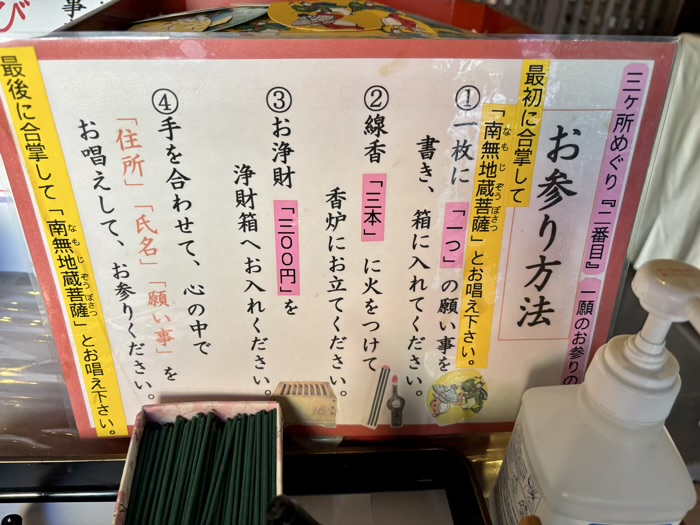 三ヶ所めぐり『二番目』一願のお参りの
お参り方法
最初に合掌して
「南無地蔵菩薩」とお唱え下さい。
なもじぞうぼさつ
①一枚に「一つ」の願い事を
書き、箱に入れてください。
②線香「三本」に火をつけて
香炉にお立てください。
③お浄財「三〇〇円」を
浄財箱へお入れください。
④手を合わせて、心の中で
「住所」「氏名」「願い事」を
お唱えして、お参りください。
最後に合掌して「南無地蔵菩薩」とお唱え下さい。
なもじぞうぼさつ